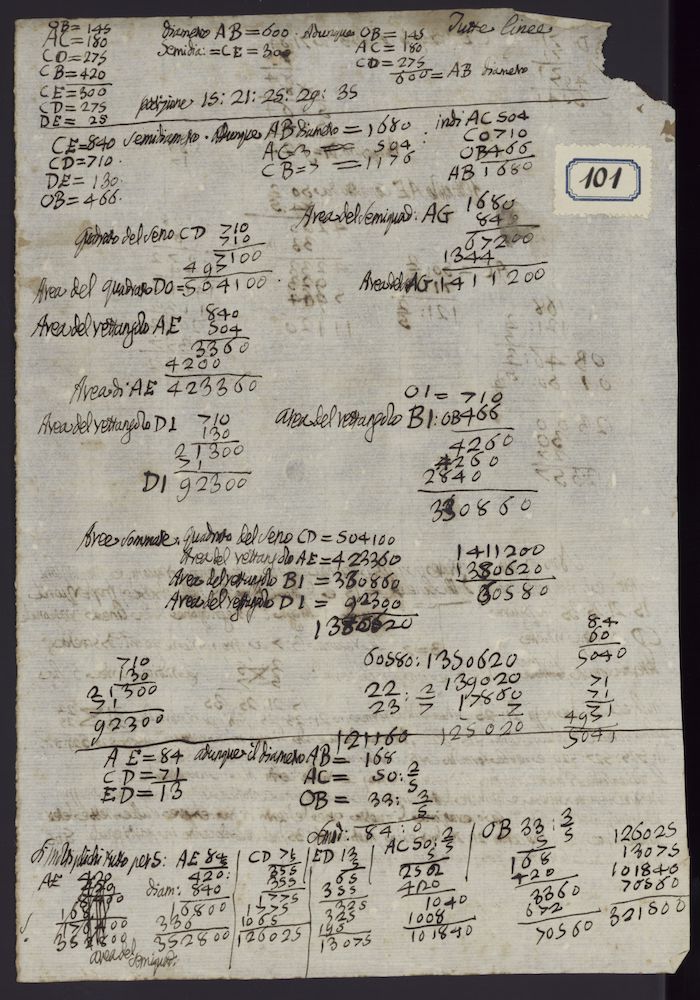 OB = 145
AC = 180
CD = 275
CB = 420
CE = 300
CD = 275
DE = 25
diametro AB = 600. dunque OB = 145
Semidia: = CE = 300 AC = 180
CD = 275
600 = AB diametro
Tutte linee
posizione 15: 21: 25: 29: 35
101
CE = 840 semidiametro. dunque AB diametro = 1680
CD = 710.
DE = 130.
OB = 466.
AG = 504
CB = 1176
indi AC 504
CO 710
OB 466
AB 1680
quadrato del seno CD 710
710
7100
497
Area del quadrato DO = 504100
Area del semiquad: AG 1680
840
67200
1344
Area del AG 1411200
Area del rettangolo AE 840
504
3360
4200
Area di AE 423360
Area del rettangolo DI 710
130
21300
71
DI 92300
OI = 710
area del rettangolo BI: OB 466
4260
4260
2840
330860
Aree sommate. quadrato del seno CD = 504100
Area del rettangolo AE = 423360
Area del rettangolo BI = 330860
Area del rettangolo DI = 92300
1350620
1411200
1350620
60580
60580: 1350620
139020
22: 2/7 17860
23 7 7
121160 125020
84
60
5040
71
71
4971
5041
710
130
21300
71
92300
AE = 84 adunque il diametro AB = 168
CD = 71 AC = 50: 2/5
ED = 13 OB = 33: 3/5
84: 0
Si moltiplichi tutto per 5: AE 84
420:
diam: 840
16800
336
352800
CD 71
355
355
1775
1775
1065
126025
ED 13
65
355
325
325
195
13075
AC 50: 2/5
5
252
420
1040
1008
101840
OB 33: 3/5
5
168
420
3360
672
70560
126025
13075
101840
70560
321500
AE 420
352800
area del semiquad: